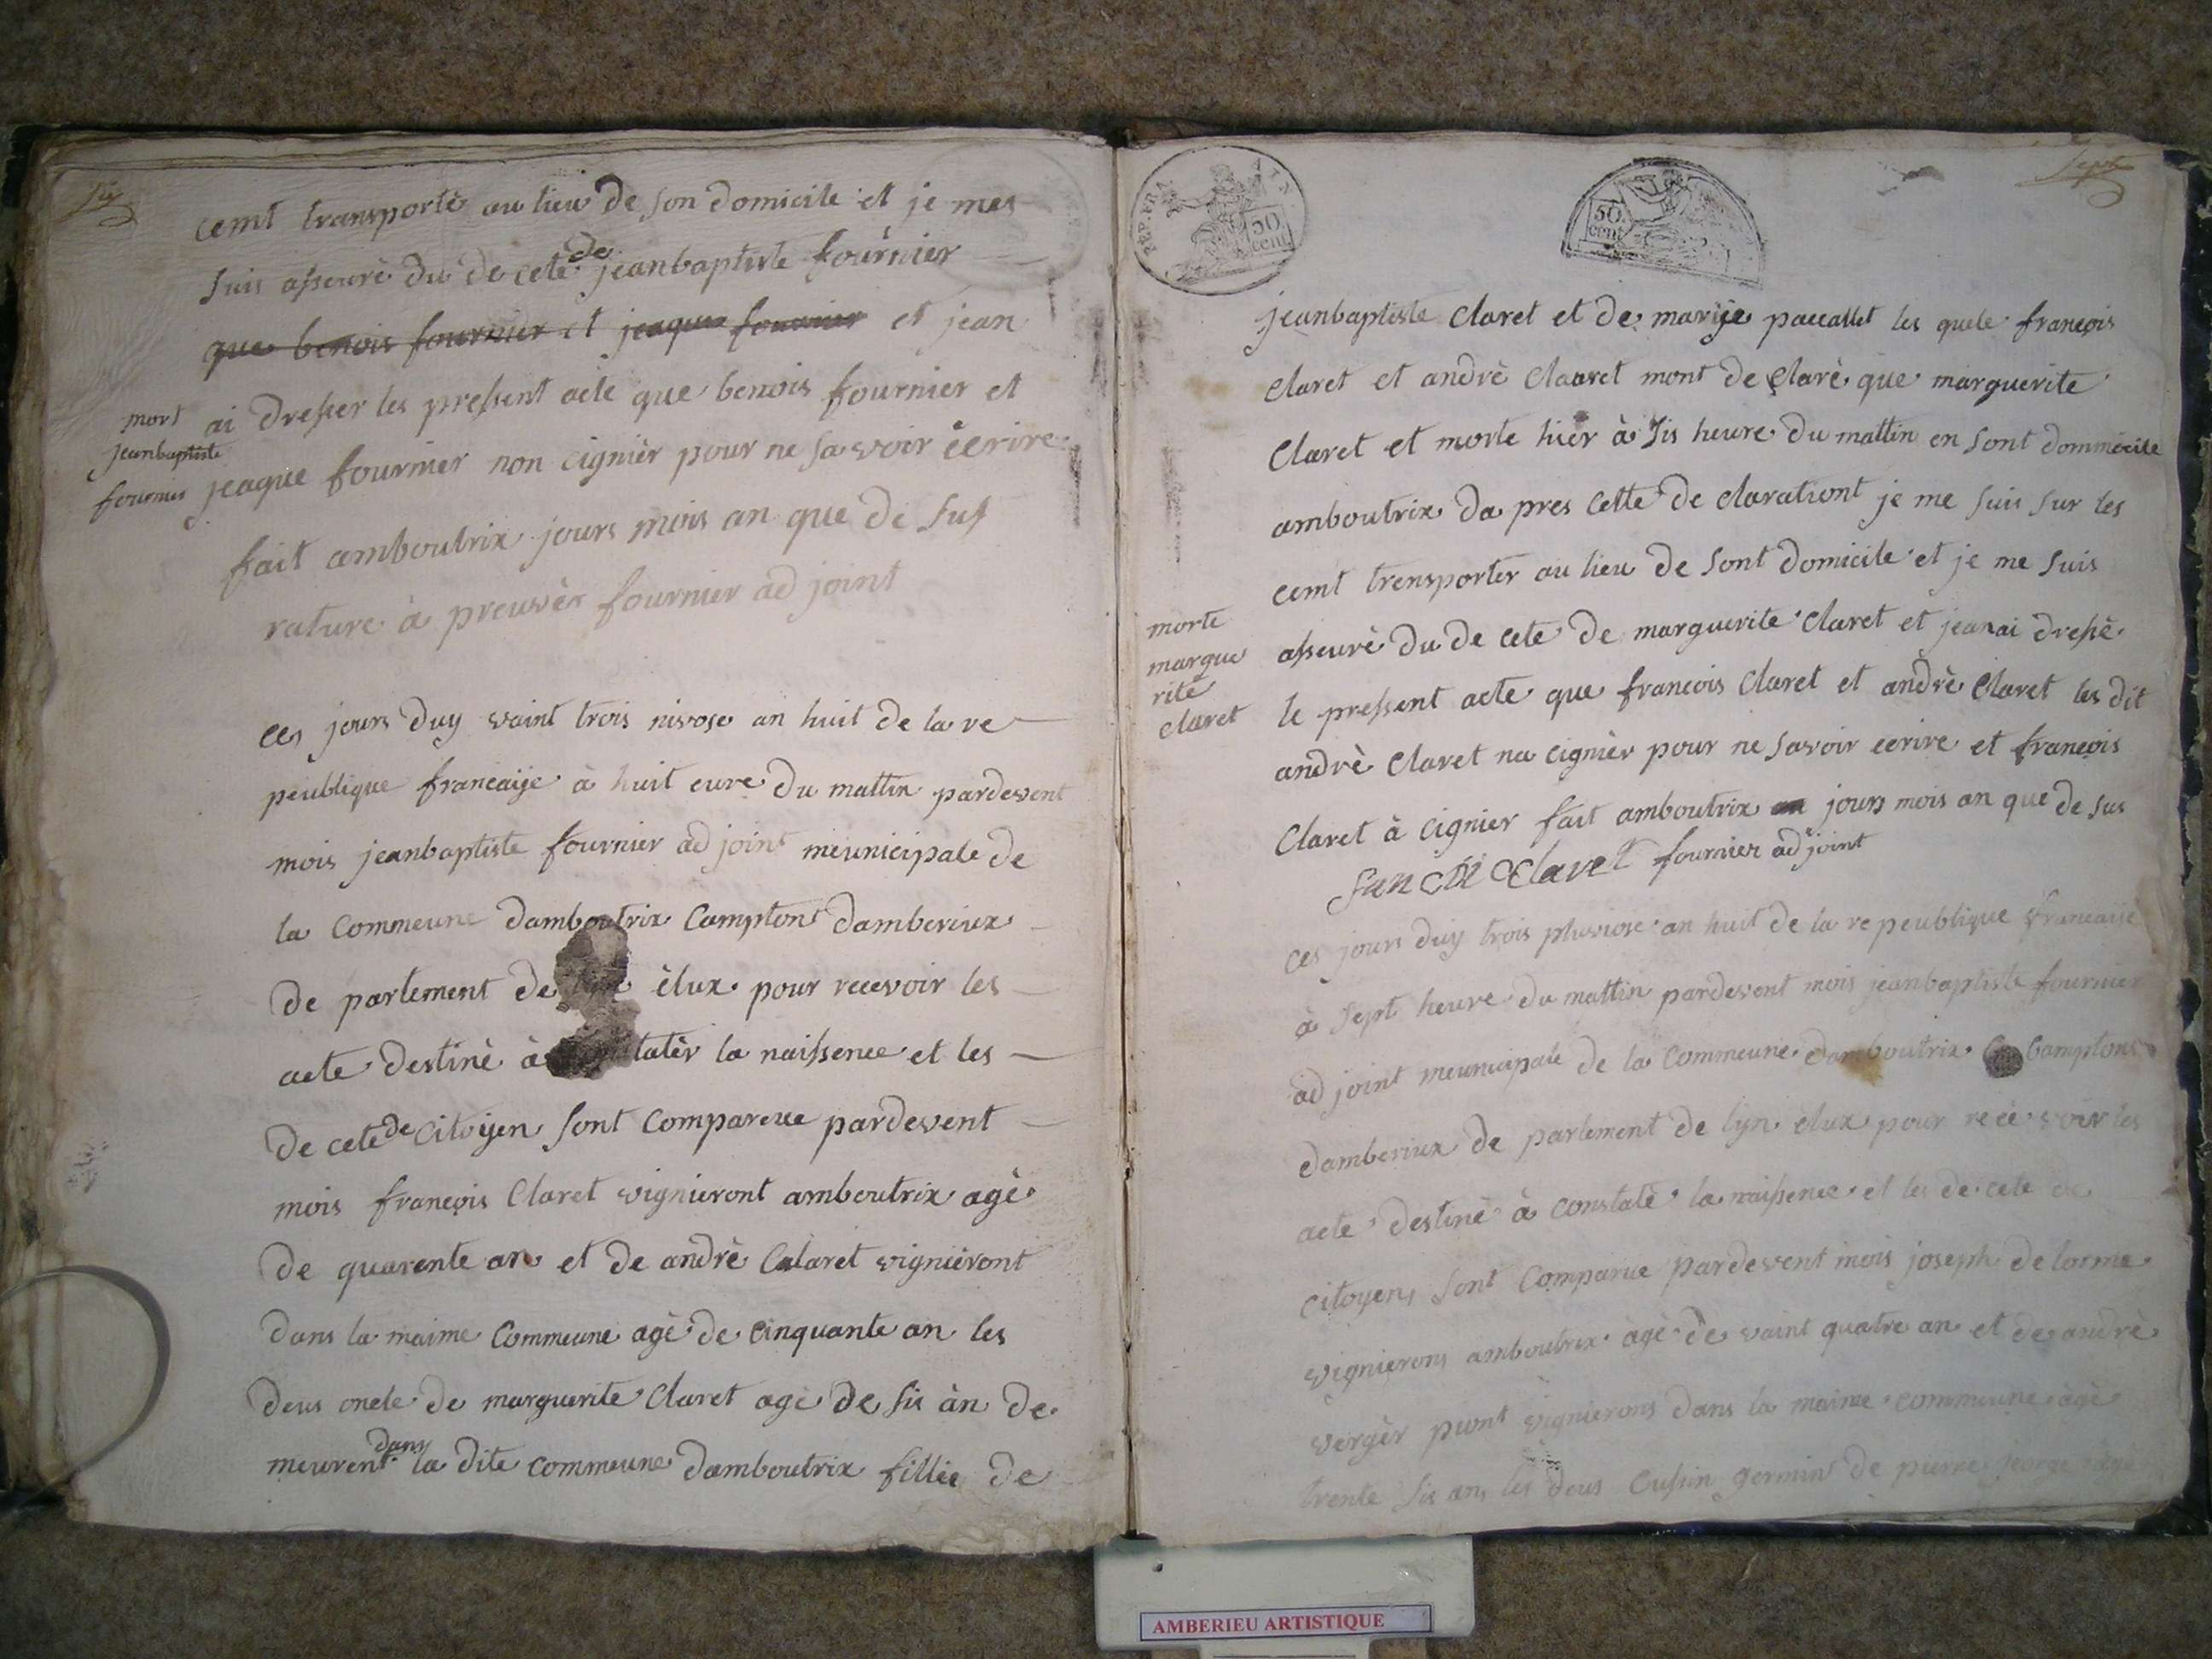 six
cemt transporté au lieu de son domicile et je mes
suis asseuré du de cete de jeanbaptiste fournier
que benois fournier et jeaque fournier et jean
ai dresser les pressent acte que benois fournier et
jeaque fournier non cignièr pour ne savoir ècrire
fait amboutrix jours mois an que de sus
rature à preuvèr fournier ad joint
mort
jeanbaptiste
fournier
ces jours duy vaint trois nivose an huit de la re
peublique francaije à huit eure du mattin pardevent
mois jeanbaptiste fournier ad joint meunicipale de
la Commeune damboutrix Campton damberiux
de partement de èlux pour recevoir les
acte destinè à la naissence et les
de cete de Citoijen sont Compareue pardevent
mois françois Claret vignieront amboutrix agè
de quarente an et de andrè Calaret vignièront
dans la maime Commeune agè de cinquante an les
deus oncle de marguerite Claret agè de sis àn de
meurent dans la dite commeune damboutrix fillie de
REP. FRA.
50
cent
50
cent
sept
jeanbaptiste Claret et de marije paccallet les quele françois
Claret et andrè Claaret mont de clarè que marguerite
Claret et morte hièr à sis heure du mattin en sont dommicile
amboutrix da pres cette de claratiront je me suis sur les
cemt trensporter au lieu de sont domicile et je me suis
asseurè du de cete de marguerite Claret et jeanai dressè
le pressent acte que francois Claret et andrè Claret les dit
andrè Claret na cignièr pour ne savoir ecrire et françois
Claret à cignier fait amboutrix an jours mois an que de sus
Claret fournier ad joint
morte
margue
rite
claret
ces jours duij trois pluviose an huit de la re peublique francaije
à sept heure du mattin pardevent mois jeanbaptiste fournier
ad joint meunicipale de la Commeune damboutrix Camptons
damberiux de partement de lyn elux pour rece voir les
acte destinè à constatè la naissence et les de cete de
citoyen, sont Comparue pardevent mois joseph de lorme
vignierons amboutrix àgè de vaint quatre an et de andrè
vergèr piont vignierons dans la maime commeune àgè
trente sis ans les deus cussin germin de pierre jeorge agè